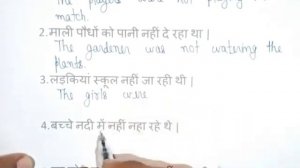 The players were not playing the
match.
2.माली पौधों को पानी नहीं दे रहा था |
The gardener was not watering the
plants.
3.लड़कियां स्कूल नहीं जा रही थी |
The girls were
4.बच्चे नदी में नहीं नहा रहे थे |